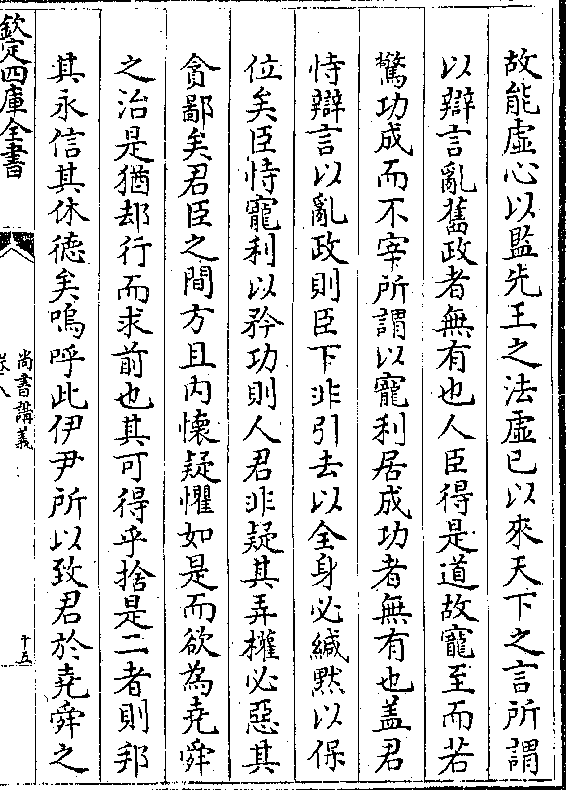 故能虛心以監先王之法虛已以來天下之言所謂
以辯言亂舊政者無有也人臣得是道故寵至而若
驚功成而不宰所謂以寵利居成功者無有也盖君
恃辯言以亂政則臣下非引去以全身必緘黙以保
位矣臣恃寵利以矜功則人君非疑其弄權必惡其
貪鄙矣君臣之間方且内懐疑懼如是而欲為堯舜
之治是猶却行而求前也其可得乎捨是二者則邦
其永信其休徳矣嗚呼此伊尹所以致君於堯舜之
欽定四庫全書
尚書講義
卷八
十五